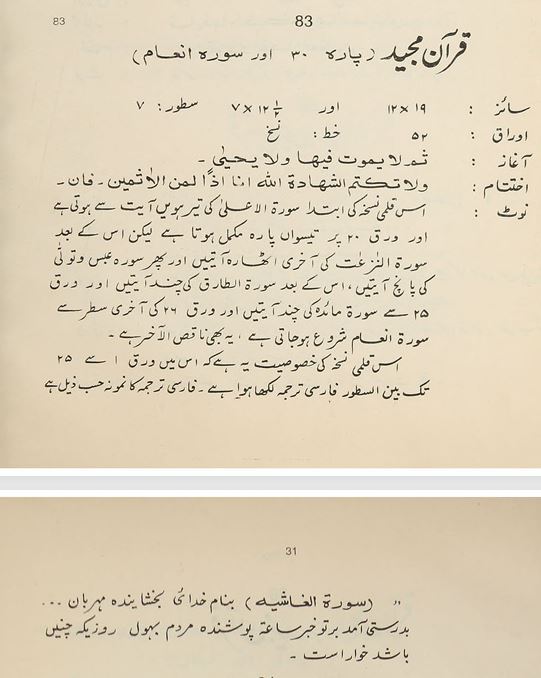 83 83
قرآن مجید (پارہ ۳۰ اور سورہ انعام)
سائز : ۱۹ × ۱۲ اور ۱۲ ½ × ۷ سطور: ۷
اوراق : ۵۲ خط: نسخ
آغاز : ثم لا یموت فیها ولا یحیٰ ۔
اختتام : ولا نکتم الشهادة الله انا اذًا لمن الاثمین ۔ فان ۔
نوٹ : اس قلمی نسخہ کی ابتدا سورة الاعلیٰ کی تیرہویں آیت سے ہوتی ہے
اور ورق ۲۰ پر تیسواں پارہ مکمل ہوتا ہے لیکن اس کے بعد
سورة النّٰزعٰت کی آخری اٹھارہ آیتیں اور پھر سورہ عبس وتولّی
کی پانچ آیتیں، اس کے بعد سورة الطارق کی چند آیتیں اور ورق
۲۵ سے سورة مائدہ کی چند آیتیں اور ورق ۲۶ کی آخری سطر سے
سورة انعام شروع ہوجاتی ہے، یہ بھی ناقص الآخر ہے ۔
اس قلمی نسخہ کی خصوصیت یہ ہے کہ اس میں ورق ۱ سے ۲۵
تک بین السطور فارسی ترجمہ لکھا ہوا ہے ۔ فارسی ترجمہ کا نمونہ حسب ذیل ہے
31
" (سورة الغاشیه) بنام خدائی بخشاینده مہربان ...
بدرستی آمد بر تو خبر ساعة پوشنده مردم بہول روزیکہ چنیں
باشد خوار است ۔